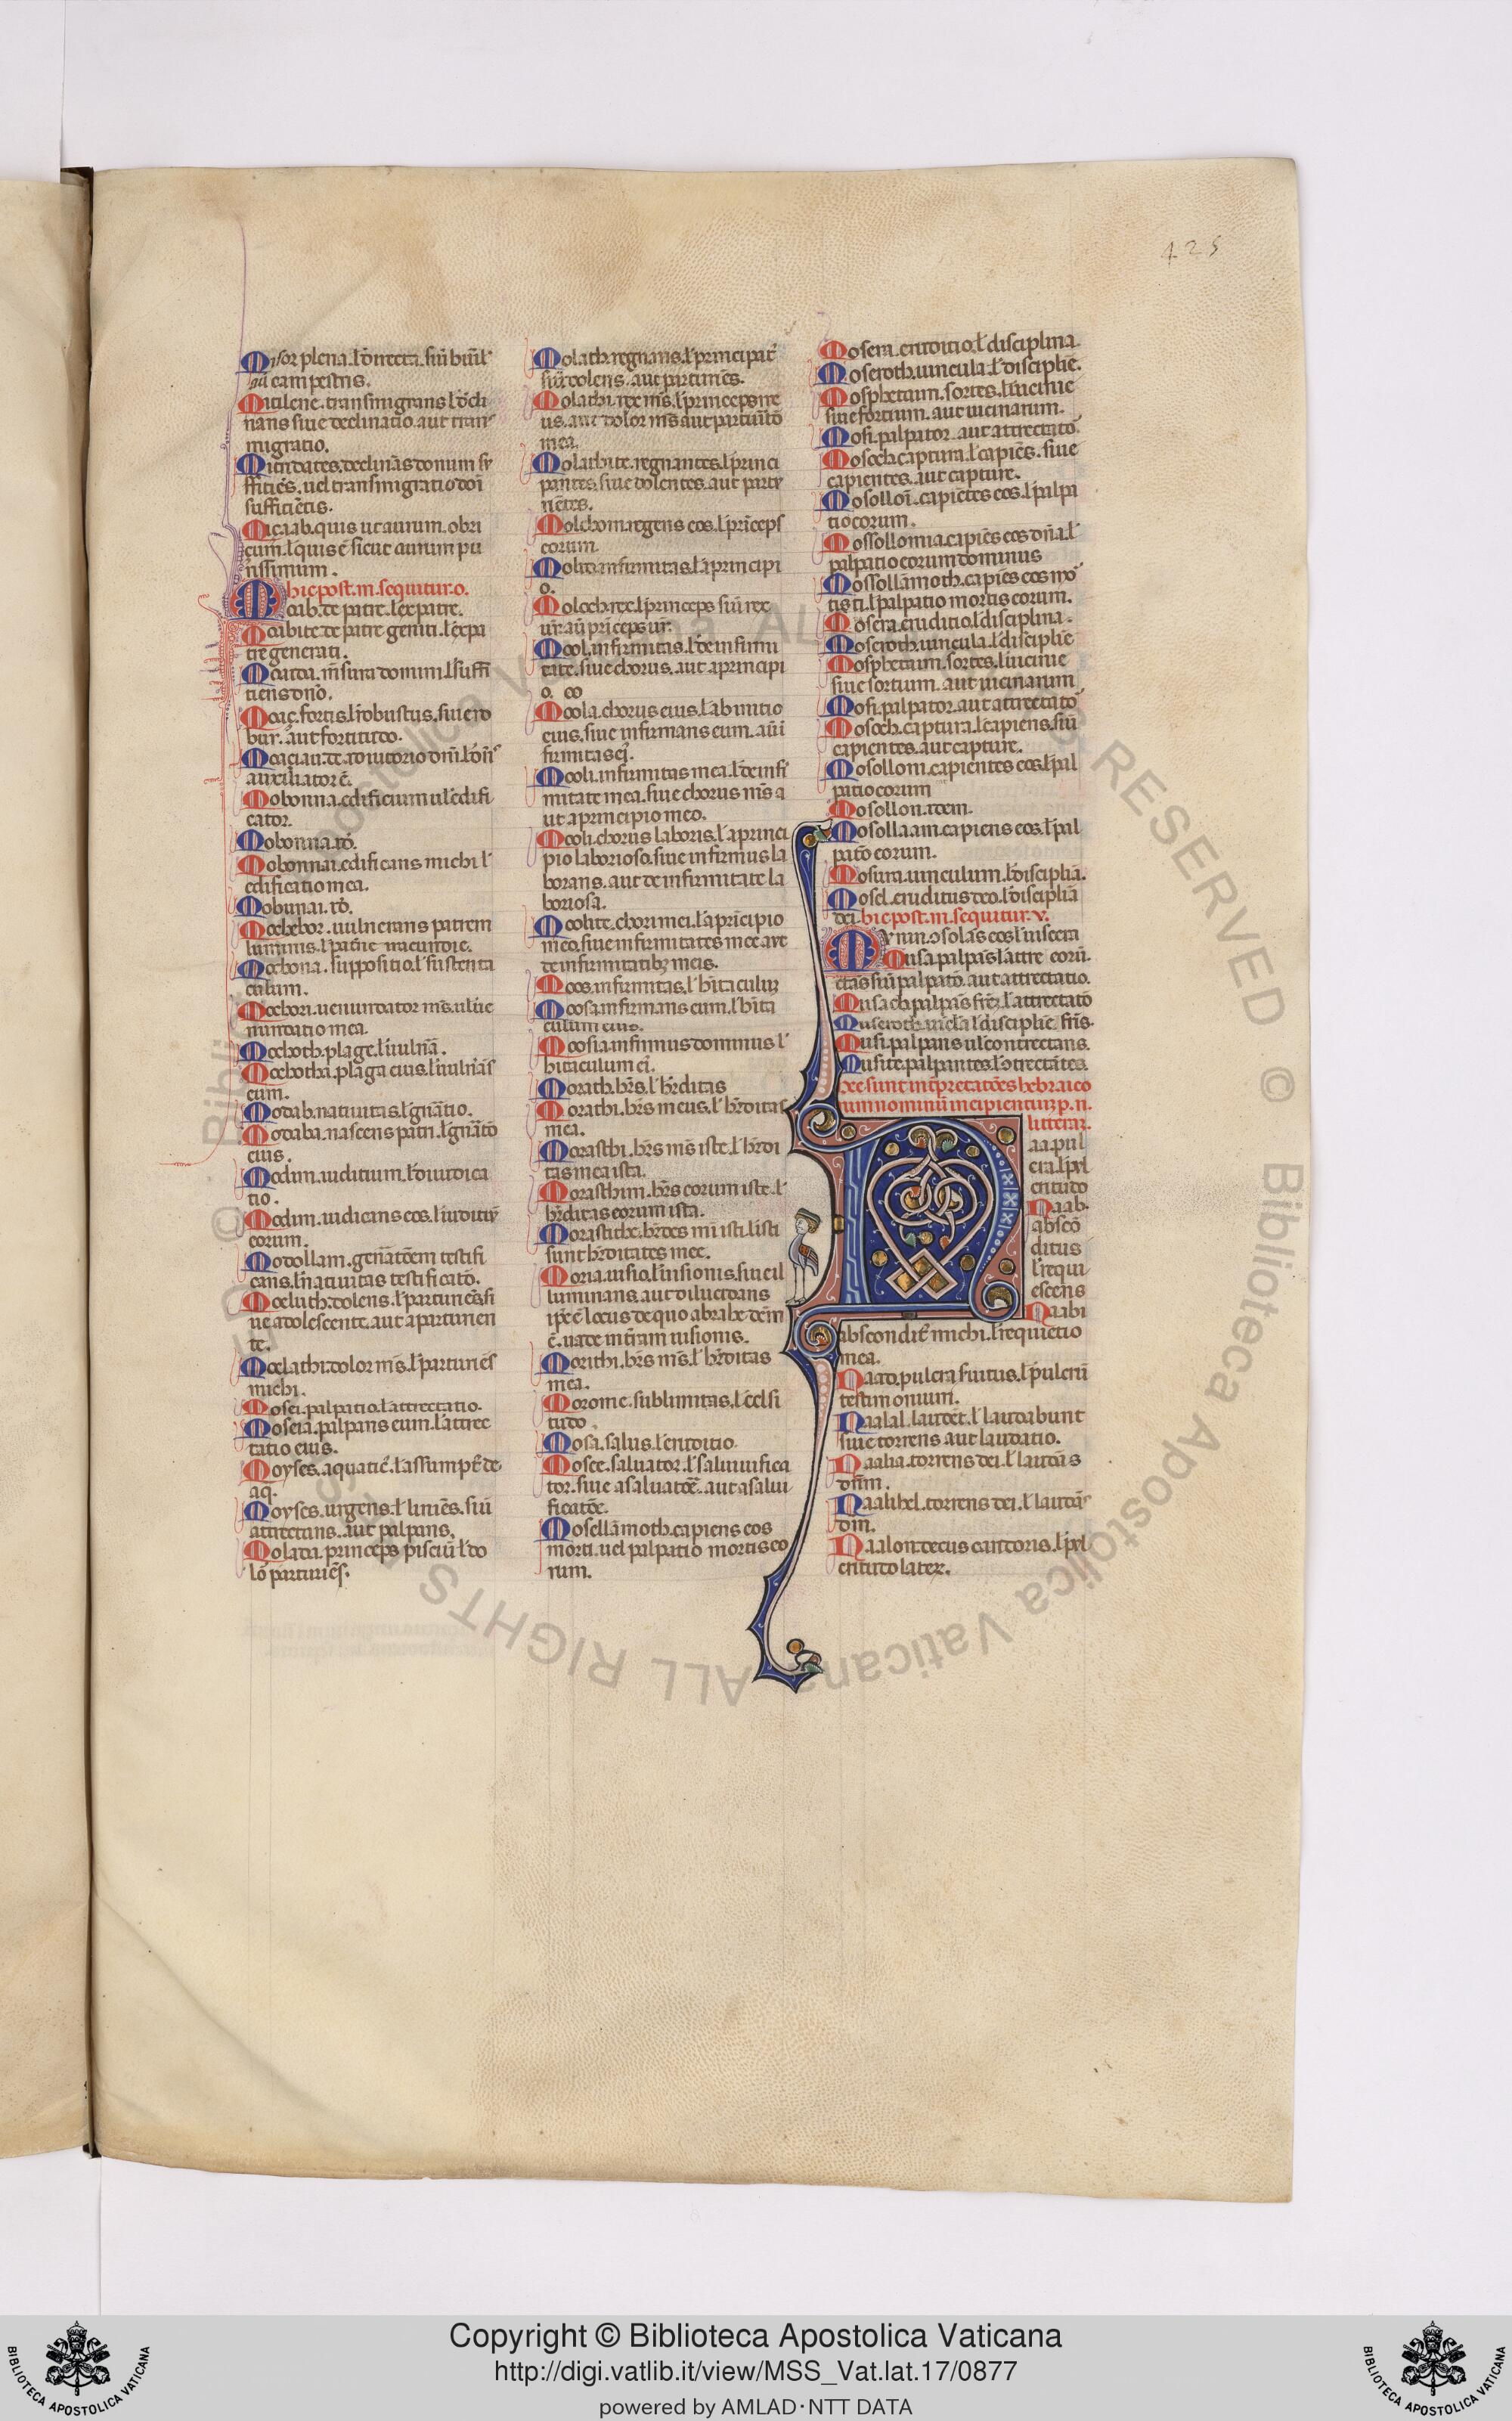 425
Misor plena. l̄ directa. siū biuīl
gā campestris.
Mitilene. transmigrans l̄ decli
nans siue declinatio. aut trans
migratio.
Mitridates. declināsdonum sy
fficiēs. uel transmigratio doni
sufficiētis.
Mizaab. quis ut aurum. obri
cum. l̄ quis ē sicut aurum pu
rissimum.
hic post. m. sequitur. o.
Moab. de patre. l̄ ex patre.
Moabite. de patre geniti. l̄ ex pa
tre generati.
Mobonna. edificium ul̄ edifi
cator.
Mobonnai. edificans michi l̄
edificatio mea.
Mochebor. uulnerans patrem
Mochona. suppositio. l̄ sustenta
culum.
nundatio mea.
Mochoth. plage. l̄ uulnā.
Mochotha. plaga eius. l̄ uulnās
eum.
Modab. natiuitas. l̄ gnātio.
Modaba. nascens patri. l̄ gnātō
eius.
Modim. iudicium. l̄ diiudica
tio.
Modim. iudicans eos. l̄ iudiciū
eorum.
Modollam. genātōem testifi
cans. l̄ natiuitas testificatō.
Moeluth. dolens. l̄ parturiēs. si
ue adolescente. aut a parturien
te.
Moelathi. dolor mš. l̄ parturiēs
michi.
Mosei. palpatio. l̄ attrectatio.
Moseia. palpans eum. l̄ attrec
tatio eius.
Moyses. aquatic᾽. l̄ assumpt᾽ de
aq̄.
Moyses. urgens. l̄ liniēs. siū
attrectans. aut palpans.
Molada. princeps pisciū l̄ do
lō parturiēs.
Molath. regnans. l̄ principat᾽
siū dolens. aut parturiēs.
Molathi. rex mš. l̄ princeps me
us. aut dolor mš aut parturitō
mea.
Molathite. regnantes. l̄ princi
pantes. siue dolentes. aut partu
riētes.
Molchom. regens eos. l̄ princeps
eorum.
Molid. infirmitas. l̄ a principi
o.
Moloch. rex. l̄ princeps siū rex
uī. aū princeps uī.
Mool. infirmitas. l̄ de infirmi
tate. siue chorus. aut a principi
o.
Moola. chorus eius. l̄ ab initio
eius. siue infirmans eum. aū i
firmitas ei᾽.
Mooli. infirmitas mea. l̄ de infi
mitate mea. siue chorus mš a
ut a principio meo.
Mooli. chorus laboris. l̄ a princi
pio laborioso. siue infirmus la
borans. aut de infirmitate la
boriosa.
Moolite. chori mei. l̄ a principio
meo. siue infirmitates mee aut
de infirmitatibꝫ meis.
Moos. infirmitas. l̄ hitaculū
Moosa. infirmans eum. l̄ hita
culum eius.
Moosia. infirmus dominus l̄
hitaculum ei᾽.
Morath. hr̄s. l̄ hr̄ditas
Morathi. hr̄s meus. l̄ hr̄ditas
mea.
Morasthi. hr̄s mš iste. l̄ hr̄di
tas mea ista.
Morasthim. hr̄s eorum iste. l̄
hr̄ditas eorum ista.
Morastithe. hr̄des mī isti. l̄ isti
sunt hr̄ditates mee.
Moria. uisio. l̄ uisionis. siue il
luminans. aut dilucidans
ip̄e ē locus de quo abrahe dēm
ē. uade in tr̄am uisionis.
Morithi. hr̄s mš. l̄ hr̄ditas
mea.
Morome. sublimitas. l̄ excelsi
tudo.
Mosa. salus. l̄ eruditio.
Mosce. saluator. l̄ saluiuifica
tor. siue a saluatōe. aut a salui
ficatōe.
Mosellāmoth. capiens eos
morti. uel palpatio mortis eo
rum.
Mosera. eruditio. l̄ disciplina
Moseroth. uincula. l̄ discipline.
Mosphetaim. sortes. l̄ uicinie
siue sortium. aut uicinarum.
Mosi. palpator. aut attrectatō.
Mosoch. captura. l̄ capiēs. siue
capientes. aut capture.
Mosollom. capiētes eos. l̄ palpa
tio eorum.
Mossollomia. capiēs eos dn̄a. l̄
palpatio eorum dominus
Mossollāmoth. capiēs eos mō
tis ti. l̄ palpatio mortis eorum.
Mosera. eruditio. l̄ disciplina.
Moseroth. uincula. l̄ discipline
Mosphetaim. sortes. l̄ uicinie
siue sortium. aut uicinarum
Mosi. palpator. aut attrectatō
Mosoch. captura. l̄ capiens. siū
capientes. aut capture.
Mosollom. capientes eos. l̄ pal
patio eorum
Mosollon. idem.
Mosollaam. capiens eos. l̄ pal
patō eorum.
Mosura. uinculum. l̄ disciplīa.
Mosel. eruditus deo. l̄ disciplīa
dei. hic post. m. sequitur. v.
Mvnim. ɔsolās eos l̄ uiscera
Musa. palpās l̄ attre eorū.
ctās siū palpatō. aut attrectatio.
Musach. palpās frēꝫ. l̄ attrectatō
Museroth. uīcla l̄ discipline frīs.
Musi. palpans ul̄ contrectans.
Musite. palpantes. l̄ ɔtrectātes.
Hee sunt int̄pretatōes hebraico
rum nominū incipientiuꝫ p. n.
litteraꝫ.
Naa. pul
cra. l̄ pul
critudo
Naab.
abscō
ditus
l̄ requi
escens
Naabi
absconditꝰ michi. l̄ requietio
mea.
Naad. pulcra fuitus. l̄ pulcrū
testimonium.
Naalal. laudēt. l̄ laudabunt
siue torrens aut laudatio.
Naalia. torrens dei. l̄ laudās
dn̄m.
Naalihel. torrens dei. l̄ laudās
dm̄.
Naalon. decus cantoris. l̄ pul
critudo later.
Copyright © Biblioteca Apostolica Vaticana
http://digi.vatlib.it/view/MSS_Vat.lat.17/0877
powered by AMLAD·NTT DATA
BIBLIOTECA APOSTOLICA VATICANA
BIBLIOTECA APOSTOLICA VATICANA
© Biblioteca Apostolica Vaticana ALL RIGHTS RESERVED